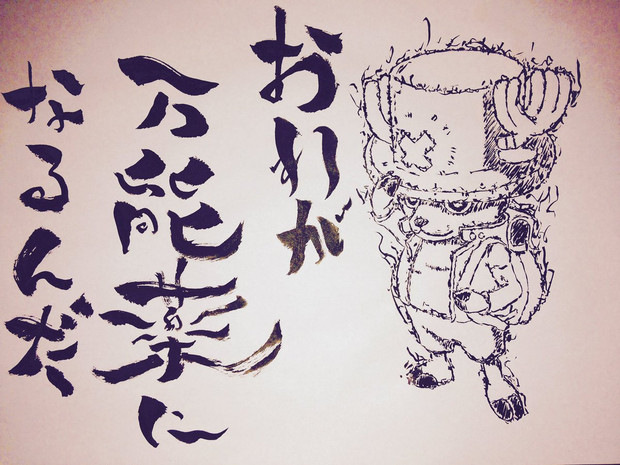 おれが
万能薬に
なるんだ